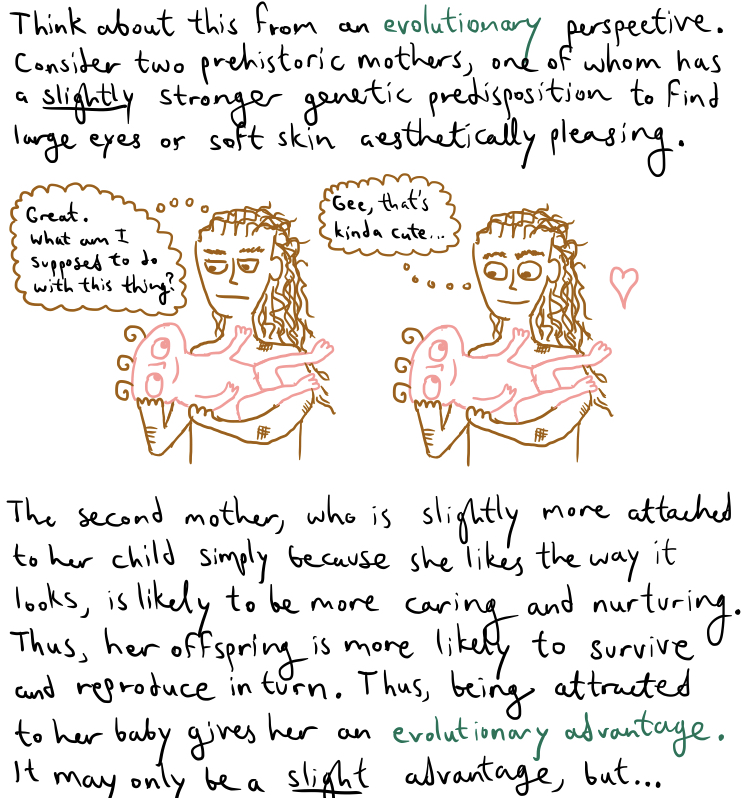 Think about this from an evolutionary perspective.
Consider two prehistoric mothers, one of whom has
a slightly stronger genetic predisposition to find
large eyes or soft skin aesthetically pleasing.
Great.
What am I
supposed to do
with this thing?
Gee, that's
kinda cute...
The second mother, who is slightly more attached
to her child simply because she likes the way it
looks, is likely to be more caring and nurturing.
Thus, her offspring is more likely to survive
and reproduce in turn. Thus, being attracted
to her baby gives her an evolutionary advantage.
It may only be a slight advantage, but...